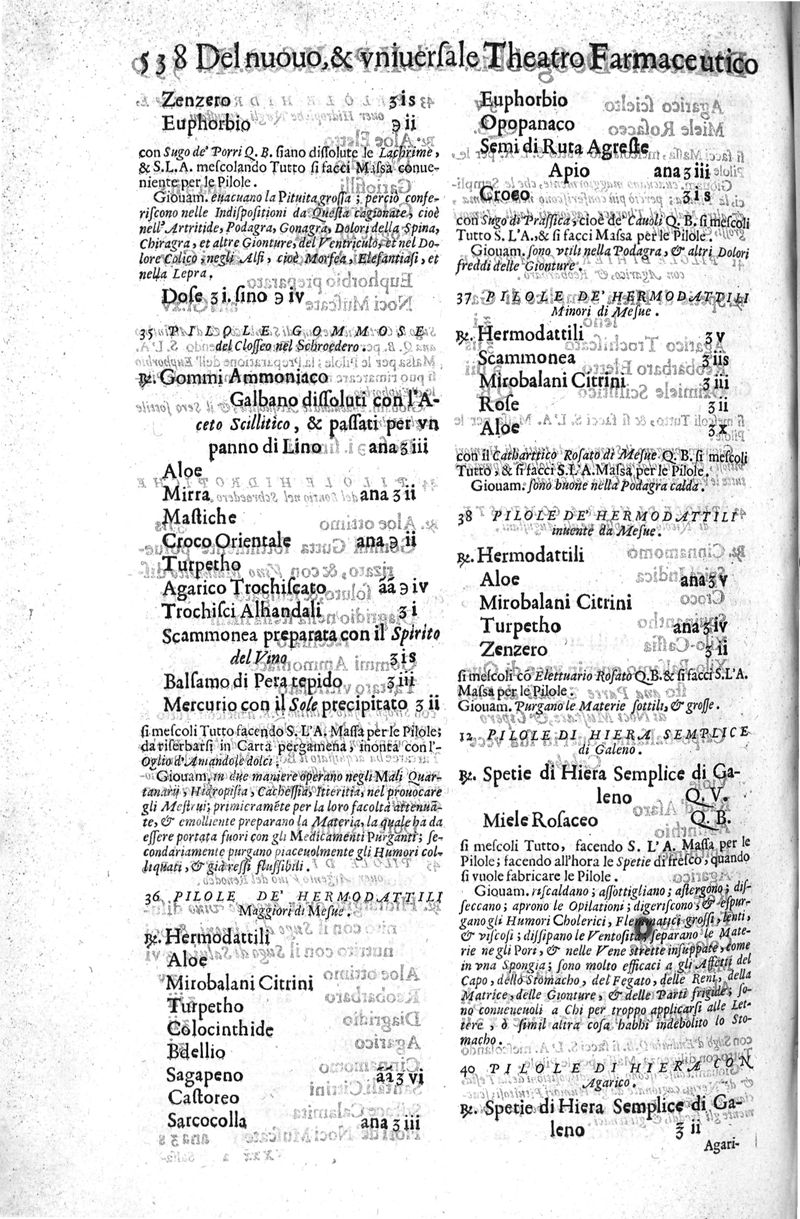 538 Del nuouo, & vniuerſale Theatro Farmaceutico
Zenzero ʒis
Euphorbio ℈ ii
con Sugo de' Porri Q. B. ſiano diſſolute le Lachrime,
& S.L.A. meſcolando Tutto ſi facci Maſſa conue-
niente per le Pilole.
Giouam. euacuano la Pituita groſſa; perciò confe-
riſcono nelle Indiſpoſitioni da Queſta cagionate, cioè
nell'Artritide, Podagra, Gonagra, Dolori della Spina,
Chiragra, et altre Gionture, del Ventriculo, et nel Do-
lore Colico; negli Alfi, cioè Morfea, Elefantiaſi, et
nella Lepra.
Doſe ʒi. ſino ℈ iv
35 PILOLE GOMMOSE
del Cloſſeo nel Schroedero.
℞. Gommi Ammoniaco
Galbano diſſoluti con l'A-
ceto Scillitico, & paſſati per vn
panno di Lino ana ʒ iii
Aloe
Mirra ana ʒ ii
Maſtiche
Croco Orientale ana ℈ ii
Turpetho
Agarico Trochiſcato āā ℈ iv
Trochiſci Alhandali ʒ i
Scammonea preparata con il Spirito
del Vino ʒis
Balſamo di Peru tepido ʒiii
Mercurio con il Sole precipitato ʒ ii
ſi meſcoli Tutto facendo S. L'A. Maſſa per le Pilole;
da riſerbarſi in Carta pergamena, inonta con l'-
Oglio d'Amandole dolci.
Giouam. in due maniere operano negli Mali Quar-
tanarij, Hidropiſia, Cacheſſia, Itteritia, nel prouocare
gli Meſtrui; primieramēte per la loro facoltà attenuā-
te, & emolliente preparano la Materia, la quale ha da
eſſere portata fuori con gli Medicamenti Purganti; ſe-
condariamente purgano piaceuolmente gli Humori col-
liquati, & già reſſi fluſſibili.
36 PILOLE DE' HERMODATTILI
Maggiori di Meſue.
℞. Hermodattili
Aloe
Mirobalani Citrini
Turpetho
Colocinthide
Bdellio
Sagapeno āā ʒ vi
Caſtoreo
Sarcocolla ana ʒ iii
Euphorbio
Opopanaco
Semi di Ruta Agreſte
Apio ana ʒ iii
Croco ʒ i s
con Sugo di Praſſica, cioè de' Cauoli Q. B. ſi meſcoli
Tutto S. L'A., & ſi facci Maſſa per le Pilole.
Giouam. ſono vtili nella Podagra, & altri Dolori
freddi delle Gionture.
37 PILOLE DE' HERMODATTILI
Minori di Meſue.
℞. Hermodattili ʒ v
Scammonea ʒ iis
Mirobalani Citrini ʒ iii
Roſe ʒ ii
Aloe ʒ x
con il Catharttico Roſato di Meſue Q. B. ſi meſcoli
Tutto, & ſi facci S.L'A. Maſſa per le Pilole.
Giouam. ſono buone nella Podagra calda.
38 PILOLE DE' HERMODATTILI
inuente da Meſue.
℞. Hermodattili
Aloe ana ʒ v
Mirobalani Citrini
Turpetho ana ʒ iv
Zenzero ʒ ii
ſi meſcoli cō Elettuario Roſato Q.B. & ſi facci S.L'A.
Maſſa per le Pilole.
Giouam. Purgano le Materie ſottili, & groſſe.
PILOLE DI HIERA SEMPLICE
di Galeno.
℞. Spetie di Hiera Semplice di Ga-
leno Q. V.
Miele Roſaceo Q. B.
ſi meſcoli Tutto, facendo S. L'A. Maſſa per le
Pilole; facendo all'hora le Spetie di freſco, quando
ſi vuole fabricare le Pilole.
Giouam. riſcaldano; aſſottigliano; aſtergono; diſ-
ſeccano; aprono le Opilationi; digeriſcono; & eſpur-
gano gli Humori Cholerici, Flemmatici groſſi, lenti,
& viſcoſi; diſſipano le Ventoſità; ſeparano le Mate-
rie negli Pori, & nelle Vene ſtrette inſuppate, come
in vna Spongia; ſono molto efficaci a gli Affetti del
Capo, dello Stomacho, del Fegato, delle Reni, della
Matrice, delle Gionture, & delle Parti frigide; ſo-
no conueneuoli a Chi per troppo applicarſi alle Let-
tere, ò ſimil altra coſa habbi indebolito lo Sto-
macho.
40 PILOLE DI HIERA CON
Agarico.
℞. Spetie di Hiera Semplice di Ga-
leno ℥ ii
Agari-